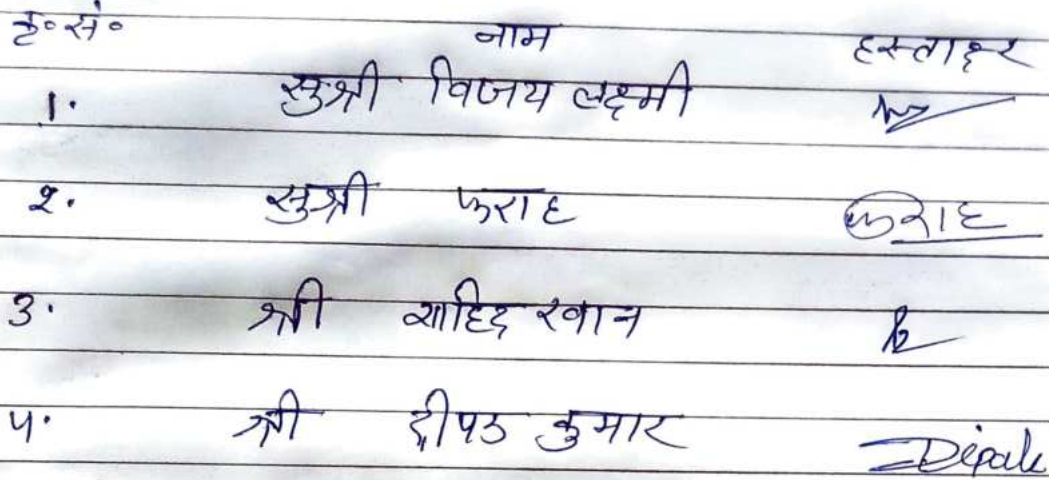 क्र०सं० नाम हस्ताक्षर
1. सुश्री विजय लक्ष्मी
2. सुश्री फराह फराह
3. श्री शाहिद खान
4. श्री दीपक कुमार Dipak